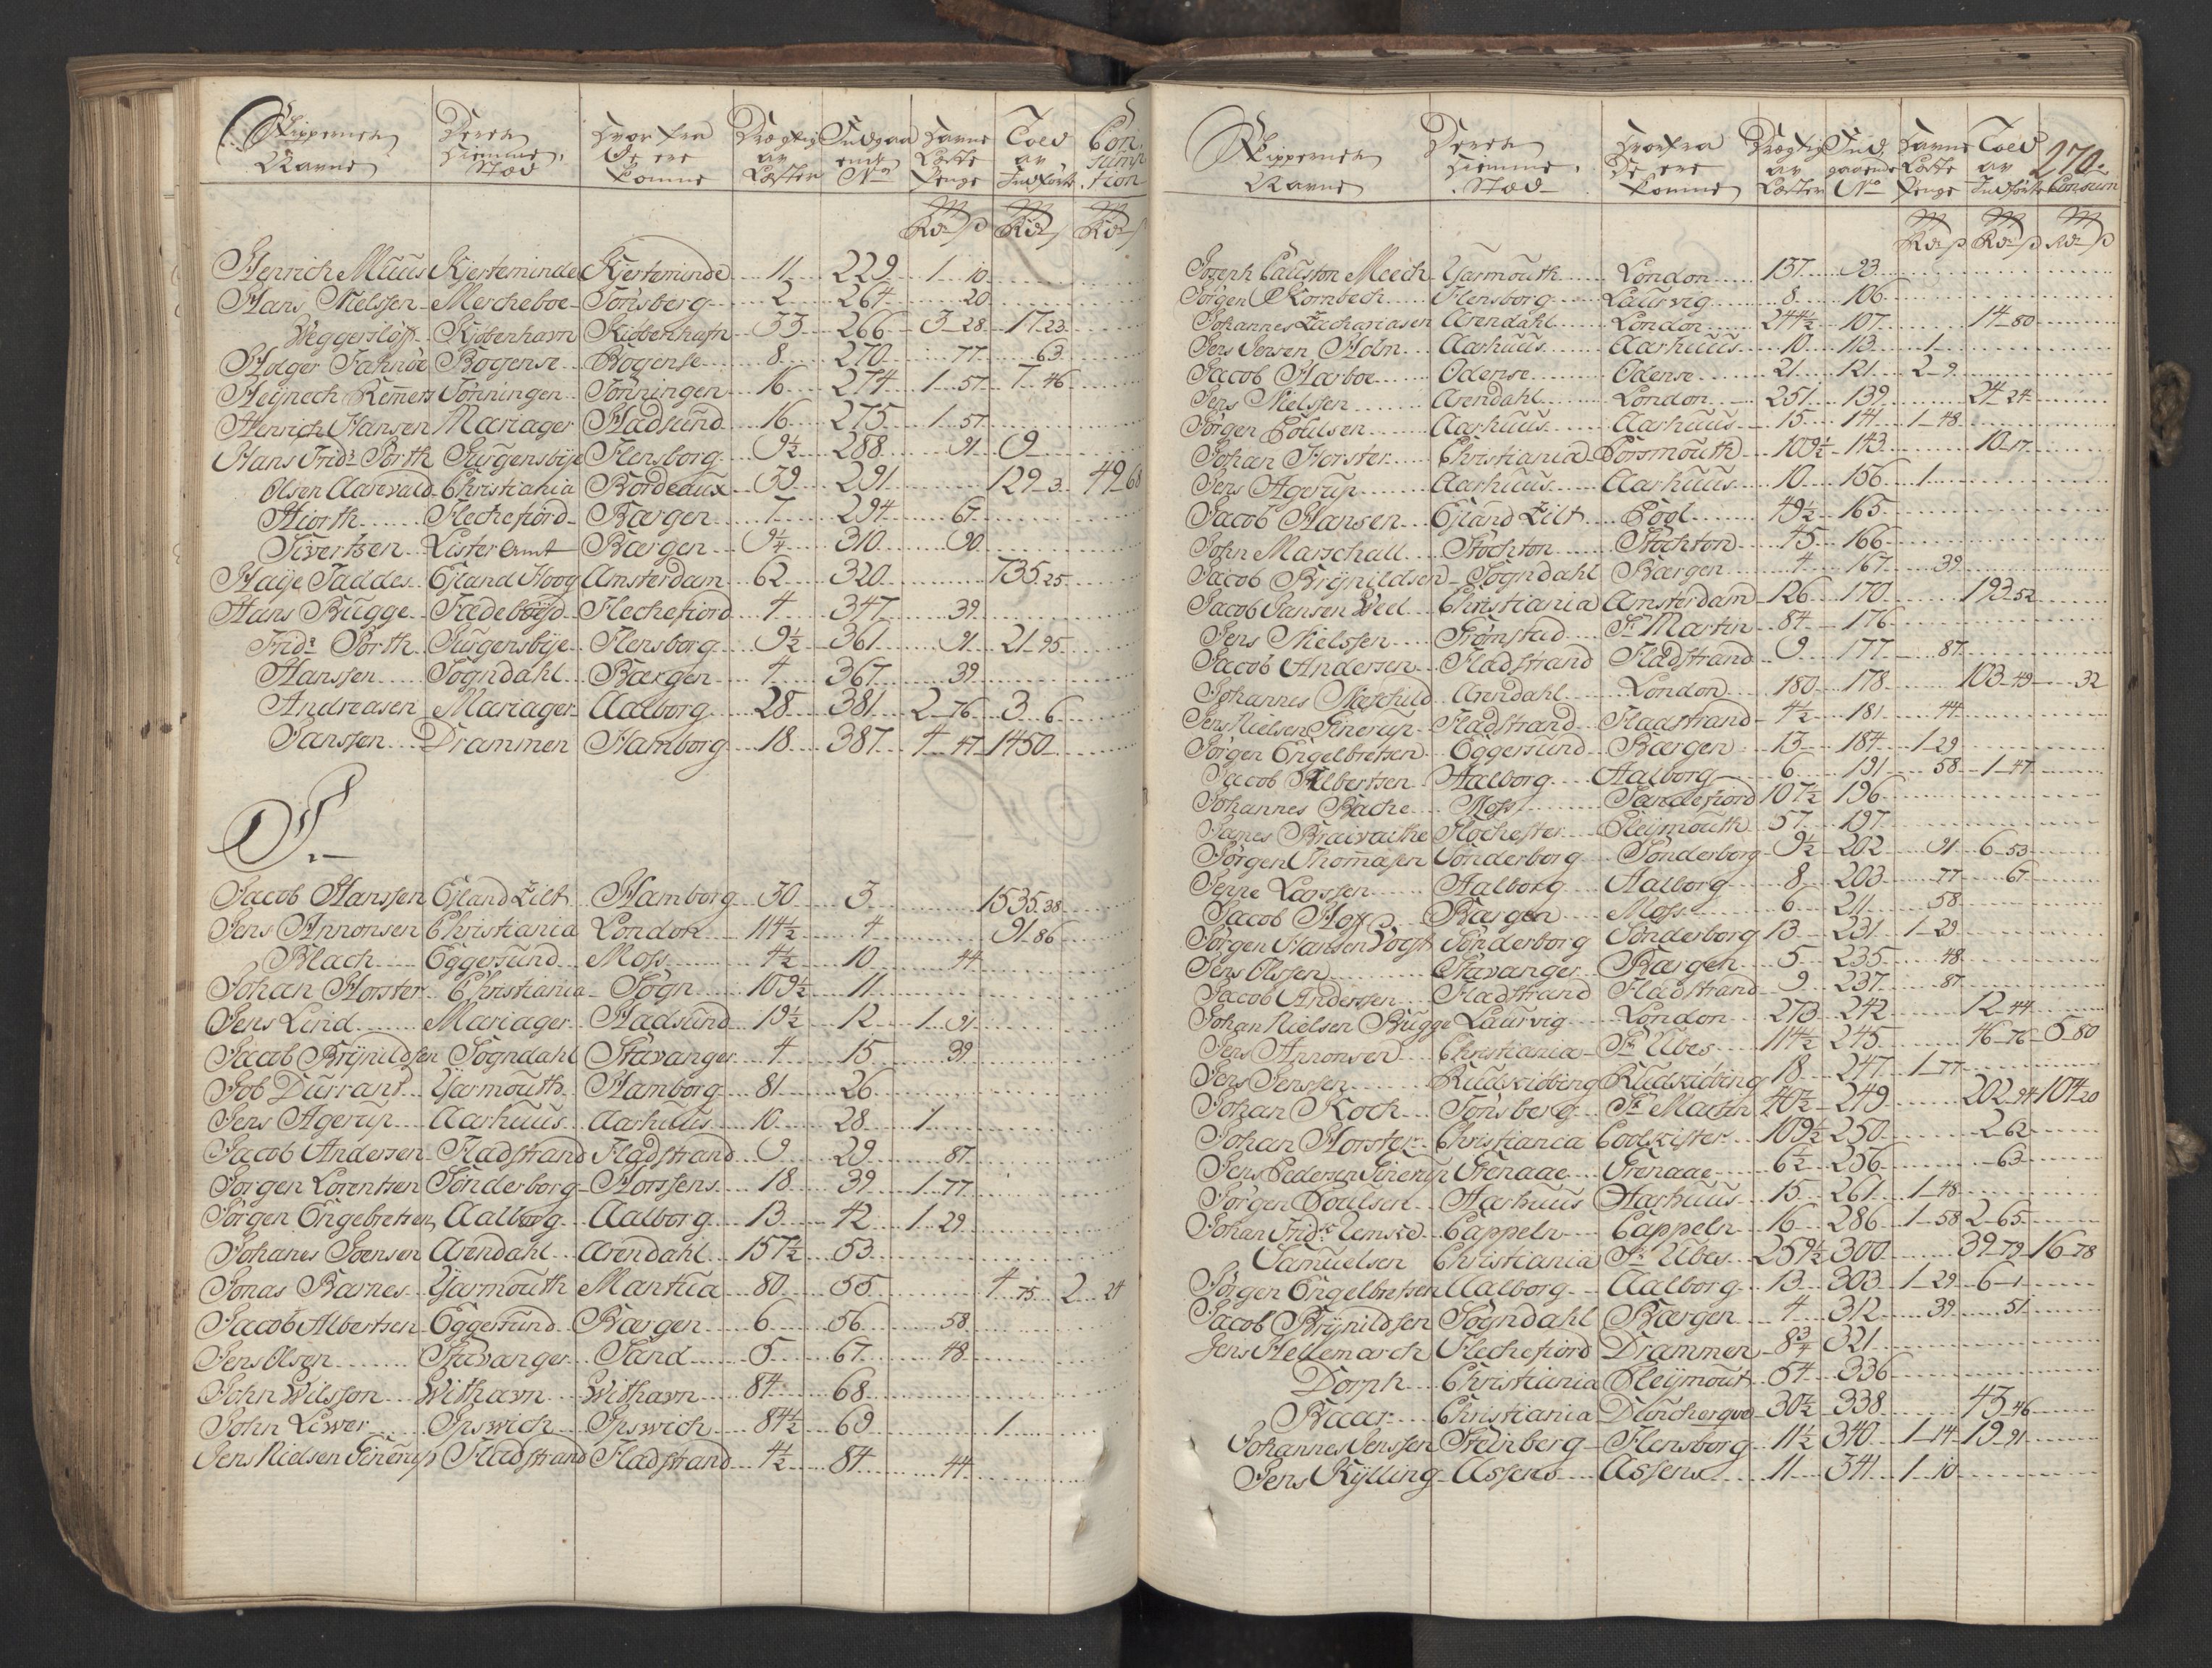 Skippernes Navne | Deres Hiemme Stæd | Hvor fra de ere komne | Drægtig av Læster | Indgaaende No | Havne Læste Penge | Told av Indførte | Consumption
Rdr ß | Rdr ß | Rdr ß
Henrich Muus Kjerteminde Kjerteminde 11 229 1 10
Hans Nielssen Mercheboe Tønsberg 2 264 20
Weggersløff Kjøbenhavn Kiøbenhafn 33 266 3 28 17 23
Holger Fahnøe Bogense Bogense 8 270 77 63
Heÿnech Remmers Tønningen Tønningen 16 274 1 57 7 46
Henrich Hansen Mariager Hadsund 16 275 1 57
Hans Fridr Porth Jurgensbÿe Flensborg 9½ 288 91 9
Olsen Aasevald Christiania Bordeaux 39 291 129 3 49 68
Hiorth Flechefiord Bærgen 7 294 67
Sivertsen Lister Amt Bærgen 9¼ 310 90
Haÿe Taddes Eÿland Hoog Amsterdam 62 320 735 25
Hans Bugge Flechefiord 4 347 39
Fridr Porth Jurgensbÿe Flensborg 9½ 361 91 21 95
Hanssen Sogndahl Bærgen 4 367 39
Andreasen Mariager Aalborg 28 381 2 76 3 6
Janssen Drammen Hamborg 18 387 4 47 1450
J.
Jacob Hanssen Eÿland Zilt Hamborg 30 3 1535 38
Jens Annonsen Christiania London 114½ 4 91 86
Blach Eggersund Moss 4½ 10 44
Johan Horster Christiania Sogn 109½ 11
Jens Lind Mariager Hadsund 19½ 12 1 91
Jacob Brÿnildsen Sogndahl Stavanger 4 15 39
Job Durrant Yarmouth Hamborg 81 26
Jens Agerup Aarhuus Aarhuus 10 28 1
Jacob Andersen Fladstrand Fladstrand 9 29 87
Jørgen Lorentsen Sønderborg Horssens 18 39 1 77
Jørgen Engebretsen Aalborg Aalborg 13 42 1 29
Johanes Joensen Arendahl Arendahl 157½ 53
Jonas Barnes Yarmouth Mantua 80 55 4 75 2 24
Jacob Albertsen Eggersund Bærgen 6 56 58
Jens Olsen Stavanger Sand 5 67 48
John Wilsson Withavn Withavn 84 68
John Liwer Ipswich Ipswich 84½ 69 1
Jens Nielsen Finerup Fladstrand Fladstrand 4½ 84 44
270
Skippernes Navne | Deres Hiemme Stæd | Hvorfra De ere komne | Drægtig av Læster | Indgaaende No | Havne Læste Penge | Told av Indførte | Consumn
Rdr ß | Rdr ß | Rdr ß
Joseph Meech Yarmouth London 137 93
Jørgen Kornbech Flensborg Laurvig 8 106
Johannes Zachariasen Arendahl London 244½ 107 14 80
Jens Jensen Holm Aarhuus Aarhuus 10 113 1
Jacob Harboe Odense Odense 21 121 2 9
Jens Nielssen Arendahl London 251 139 24 24
Jørgen Poulsen Aarhuus Aarhuus 15 141 1 48
Johan Horster Christiania Porsmouth 109½ 143 10 17
Jens Agerup Aarhuus Aarhuus 10 156 1
Jacob Hansen Eÿland Zilt Pool 49½ 165
John Marschall Stochton Stochton 45 166
Jacob Brÿnildsen Sogndahl Bærgen 4 167 39
Jacob Jansen Wed Christiania Amsterdam 126 170 193 52
Jens Nielssen Strømstad St Martin 84 176
Jacob Andersen Fladstrand Fladstrand 9 177 87
Johannes Herschild Arendahl London 180 178 103 49 32
Jens Nielsen Finerup Fladstrand Fladstrand 4½ 181 44
Jørgen Engelbretsen Eggersund Bærgen 13 184 1 29
Jacob Albertsen Aalborg Aalborg 6 191 58 1 47
Johannes Bache Moss Sandefiord 107½ 196
James Braiwaithe Rochester Pleÿmouth 57 197
Jørgen Thomasen Sønderborg Sønderborg 9½ 202 91 6 53
Jeppe Larssen Aalborg Aalborg 8 203 77 67
Jacob Hoff Bærgen Moss 6 211 58
Jørgen Hansen Vogt Sønderborg Sønderborg 13 231 1 29
Jens Olssen Stavanger Bærgen 5 235 48
Jacob Andersen Fladstrand Fladstrand 9 237 87
Johan Nielsen Bugge Laurvig London 273 242 12 44
Jens Annonsen Christiania St Ubes 114½ 245 46 76 5 80
Jens Jenssen Rudkiøbing Rudkiøbing 18 247 1 77
Johan Koch Tønsberg St Martin 40½ 249 202 94 104 20
Johan Horster Christiania Coolkister 109½ 250 2 62
Jens Pedersen Finerup Grenaae Grenaae 6½ 256 63
Jørgen Poulsen Aarhuus Aarhuus 15 261 1 48
Johan Fridr Cappeln Cappeln 16 286 1 58 2 65
Samuelsen Christiania St Ubes 259½ 300 39 79 16 78
Jørgen Engelbretsen Aalborg Aalborg 13 303 1 29 6 1
Jacob Brÿnildsen Sogndahl Bærgen 4 312 39 51
Jens Hellemarch Flechefiord Drammen 8¾ 321
Dorph Christiania Pleÿmout 54 336
Baar Christiania Duncherque 30½ 338 43 46
Johannes Jenssen Steinberg Flensborg 11½ 340 1 14 19 91
Jens Kÿlling Assens Assens 11 341 1 10